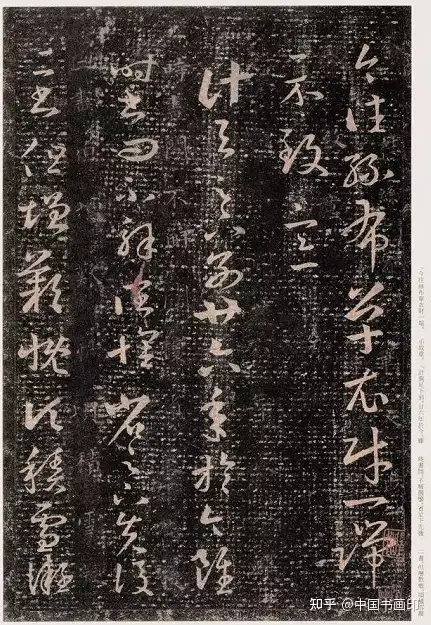 今往絲布單衣財一端
示致意
計與足下別廿六年於今雖
時書問不解闊懷省足下先後
二書但增歎慨頃積雪凝
知乎 @中国书画印